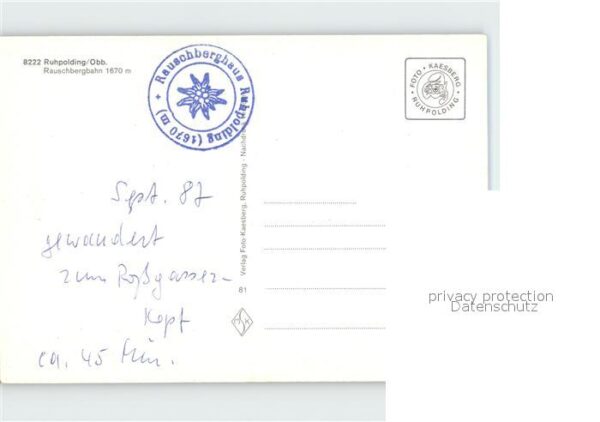 8222 Ruhpolding/Obb.
Rauschbergbahn 1670 m
+ Rauschberghaus Ruhpolding (1670 m)
FOTO • KAESBERG • RUHPOLDING •
Sept. 87
gewandert
zum Roßgasser-
Kopf
ca. 45 Min.
Verlag Foto-Kaesberg, Ruhpolding · Nachdruck
81
privacy protection
Datenschutz